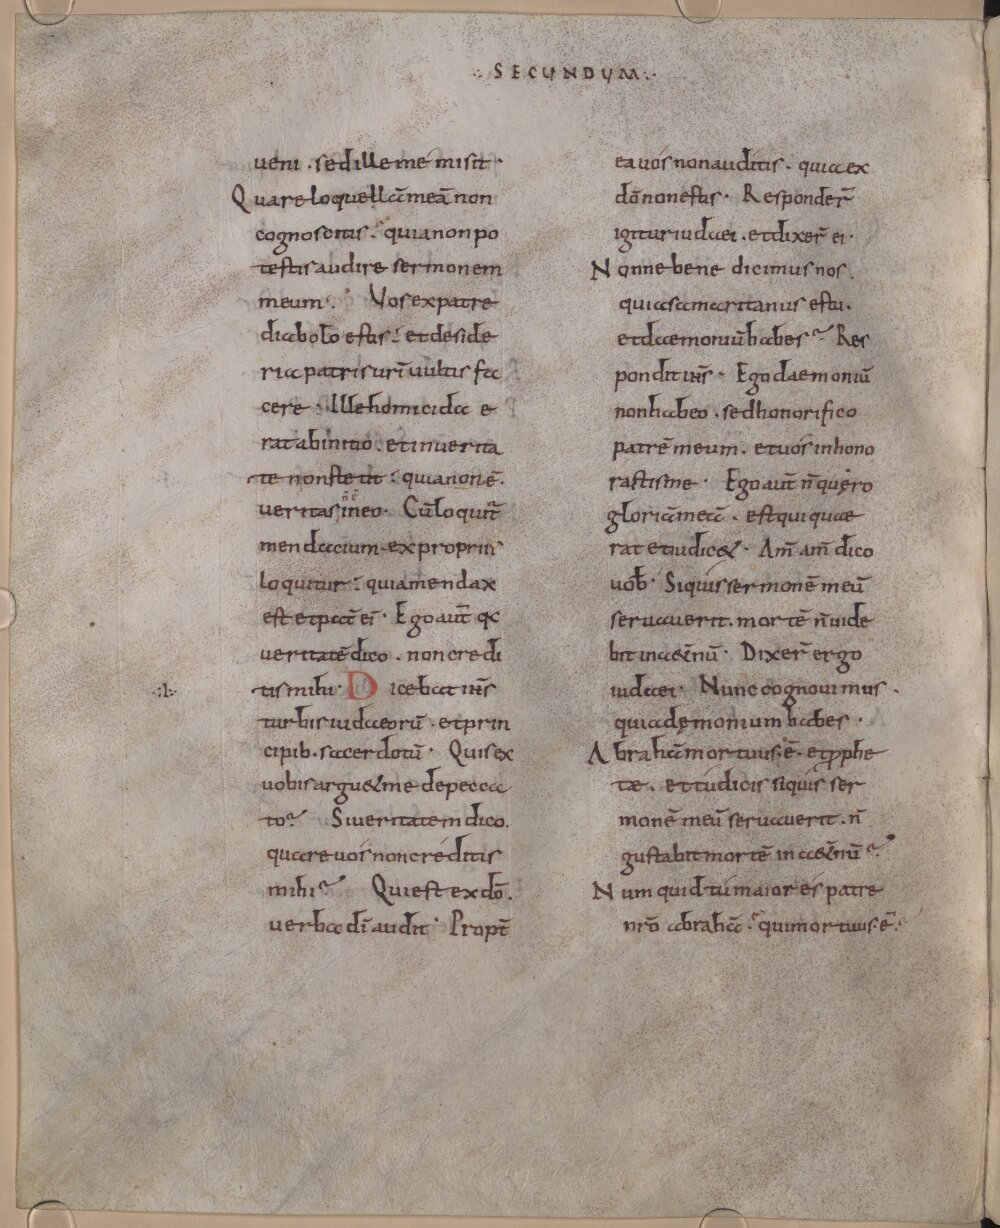 ·: SECUNDUM :·
veni · sed ille me misit ·
Quare loquellā meā non
cognoscitis · quia non po
testis audire sermonem
meum · Vos ex patre
diabolo estis · et deside
ria patris urī vultis fa
cere · Ille homicida e
rat ab initio · et in verita
te non stetit · quia non ē
n̄ ē
veritas in eo · Cū loquit̄
mendacium · ex propriis
loquitur · quia mendax
est et pat̄ ei · Ego aut̄ q
veritatē dico · non credi
tis mihi · Dicebat ih̄s
·:l·
turbis iudaeorū · et prin
cipib · sacerdotū · Quis ex
vobis argu& me de pecca
to · Si veritatem dico ·
quare vos non creditis
mihi · Qui est ex dō ·
verba dī audit · Propt̄
ea vos non auditis · quia ex
dō non estis · Responder̄
igitur iudaei · et dixer̄ ei ·
Nonne bene dicimus nos ·
quia samaritanus es tu ·
et daemoniū habes · Res
pondit ih̄s · Ego daemoniū
non habeo · sed honorifico
patrē meum · et vos inhono
rastis me · Ego aut̄ n̄ quęro
gloriā meā · est qui quae
rat et iudic& · Am̄ am̄ dico
vob̄ · Siquis sermonē meū
servaverit · mortē n̄ vide
bit in aet̄nū · Dixer̄ ergo
iudaei · Nunc cognovimus ·
quia dęmonium habes ·
Abrahā mortuus · ē · et pphe
tae · et tu dicis siquis ser
monē meū servaverit · n̄
gustabit mortē in aet̄nū
Numquid tu maior es patre
nrō abrahā · qui mortuus · ē ·